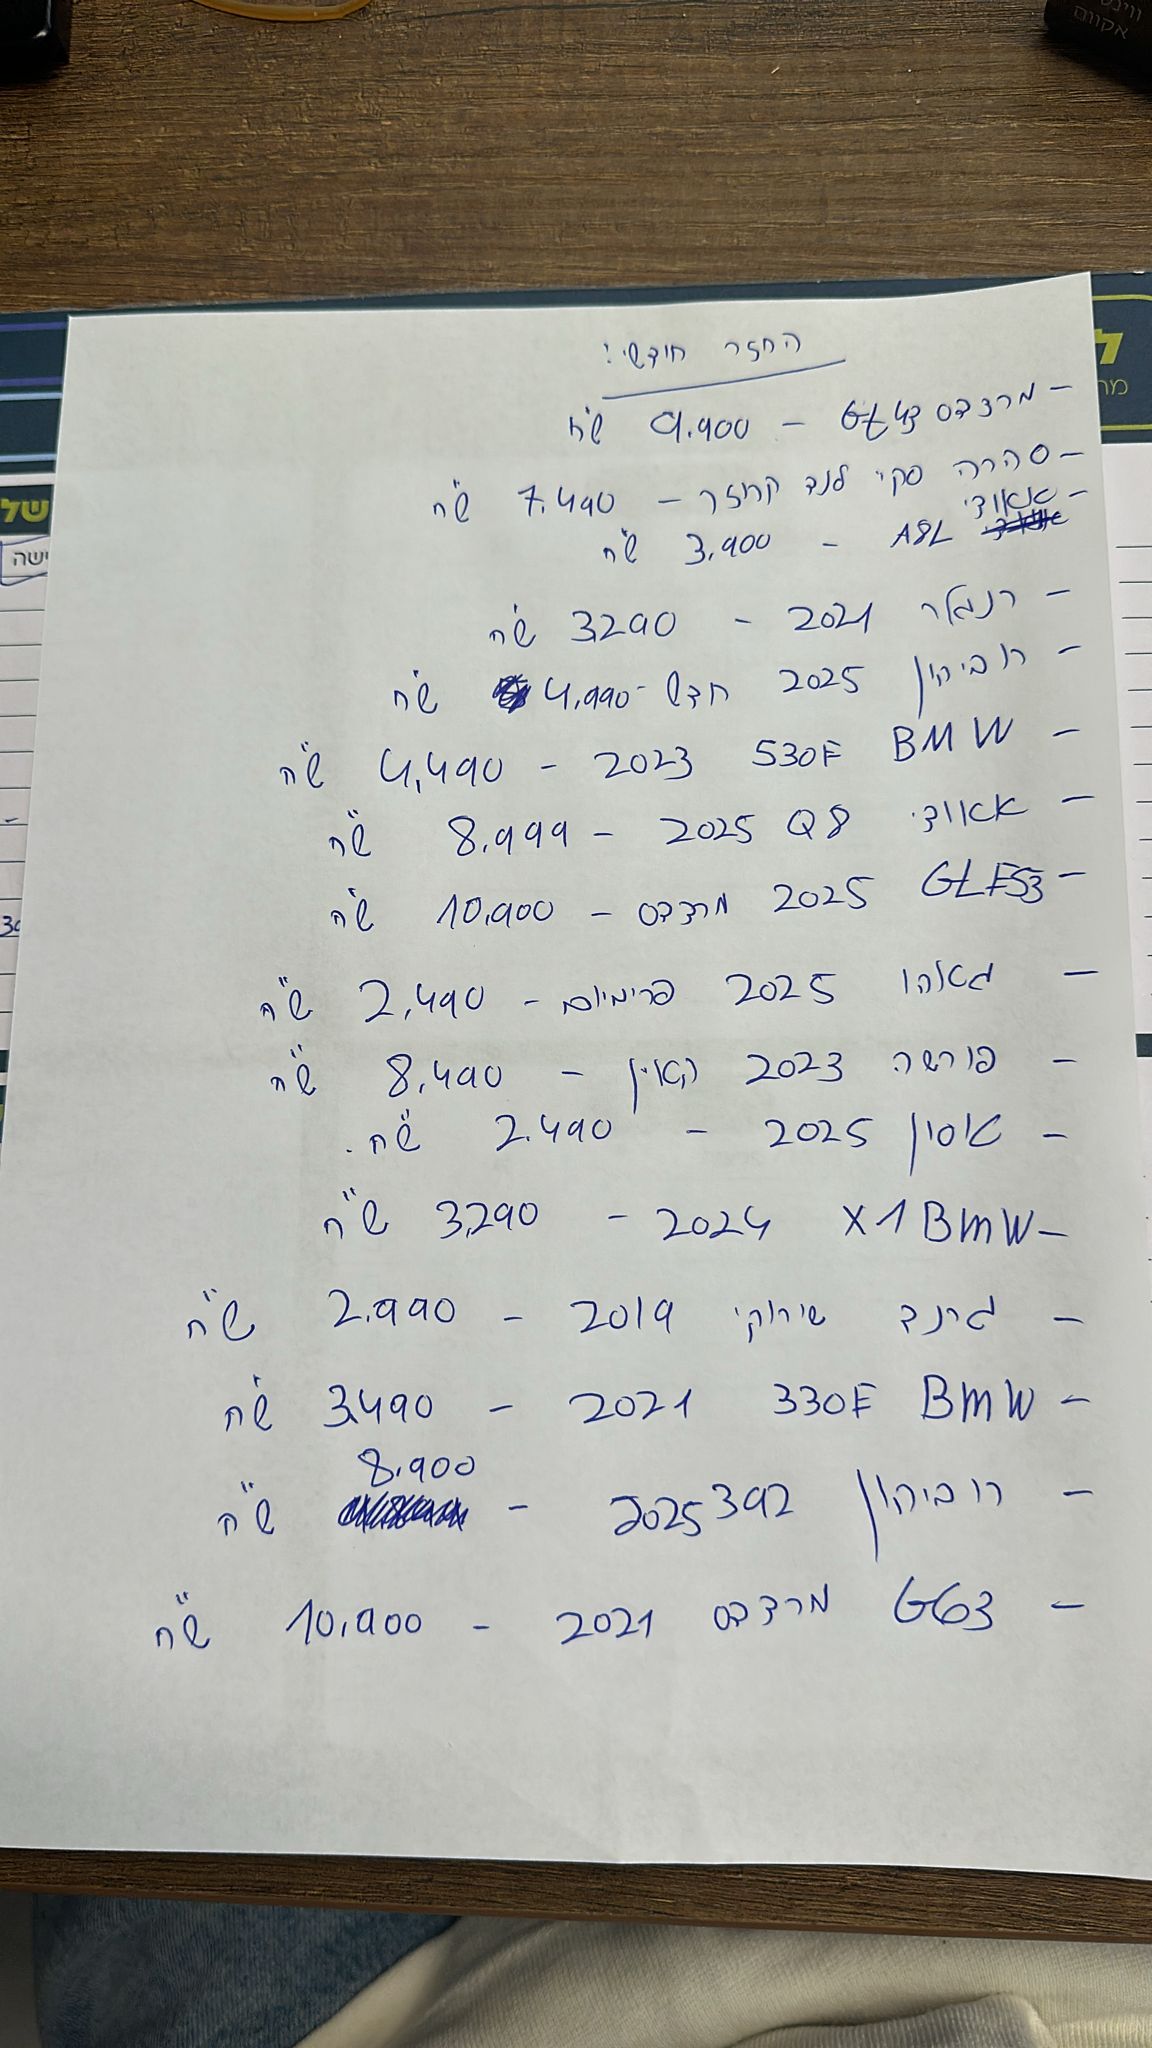 ווינס
אקווים
החזר חודשי:
- מרצדס GLE43 - 9.900 ש"ח
- סהרה סקיי לנד קרוזר - 7.490 ש"ח
- אאודי A8L - 3,900 ש"ח
- רנגלר 2021 - 3,290 ש"ח
- רוביקון 2025 חדש - 4,990 ש"ח
- BMW 530E 2023 - 4,490 ש"ח
- אאודי Q8 2025 - 8.999 ש"ח
- GLE53 2025 מרצדס - 10,900 ש"ח
- 2025 פרימיום - 2,490 ש"ח
- פורשה 2023 קאיין - 8,490 ש"ח
- טוסון 2025 - 2.490 ש"ח.
- BMW X1 2024 - 3,290 ש"ח
- גרנד שירוקי 2019 - 2.990 ש"ח
- BMW 330E 2021 - 3,490 ש"ח
- רוביקון 392 2025 - 8.900 ש"ח
- G63 מרצדס 2021 - 10,900 ש"ח
של
ישה